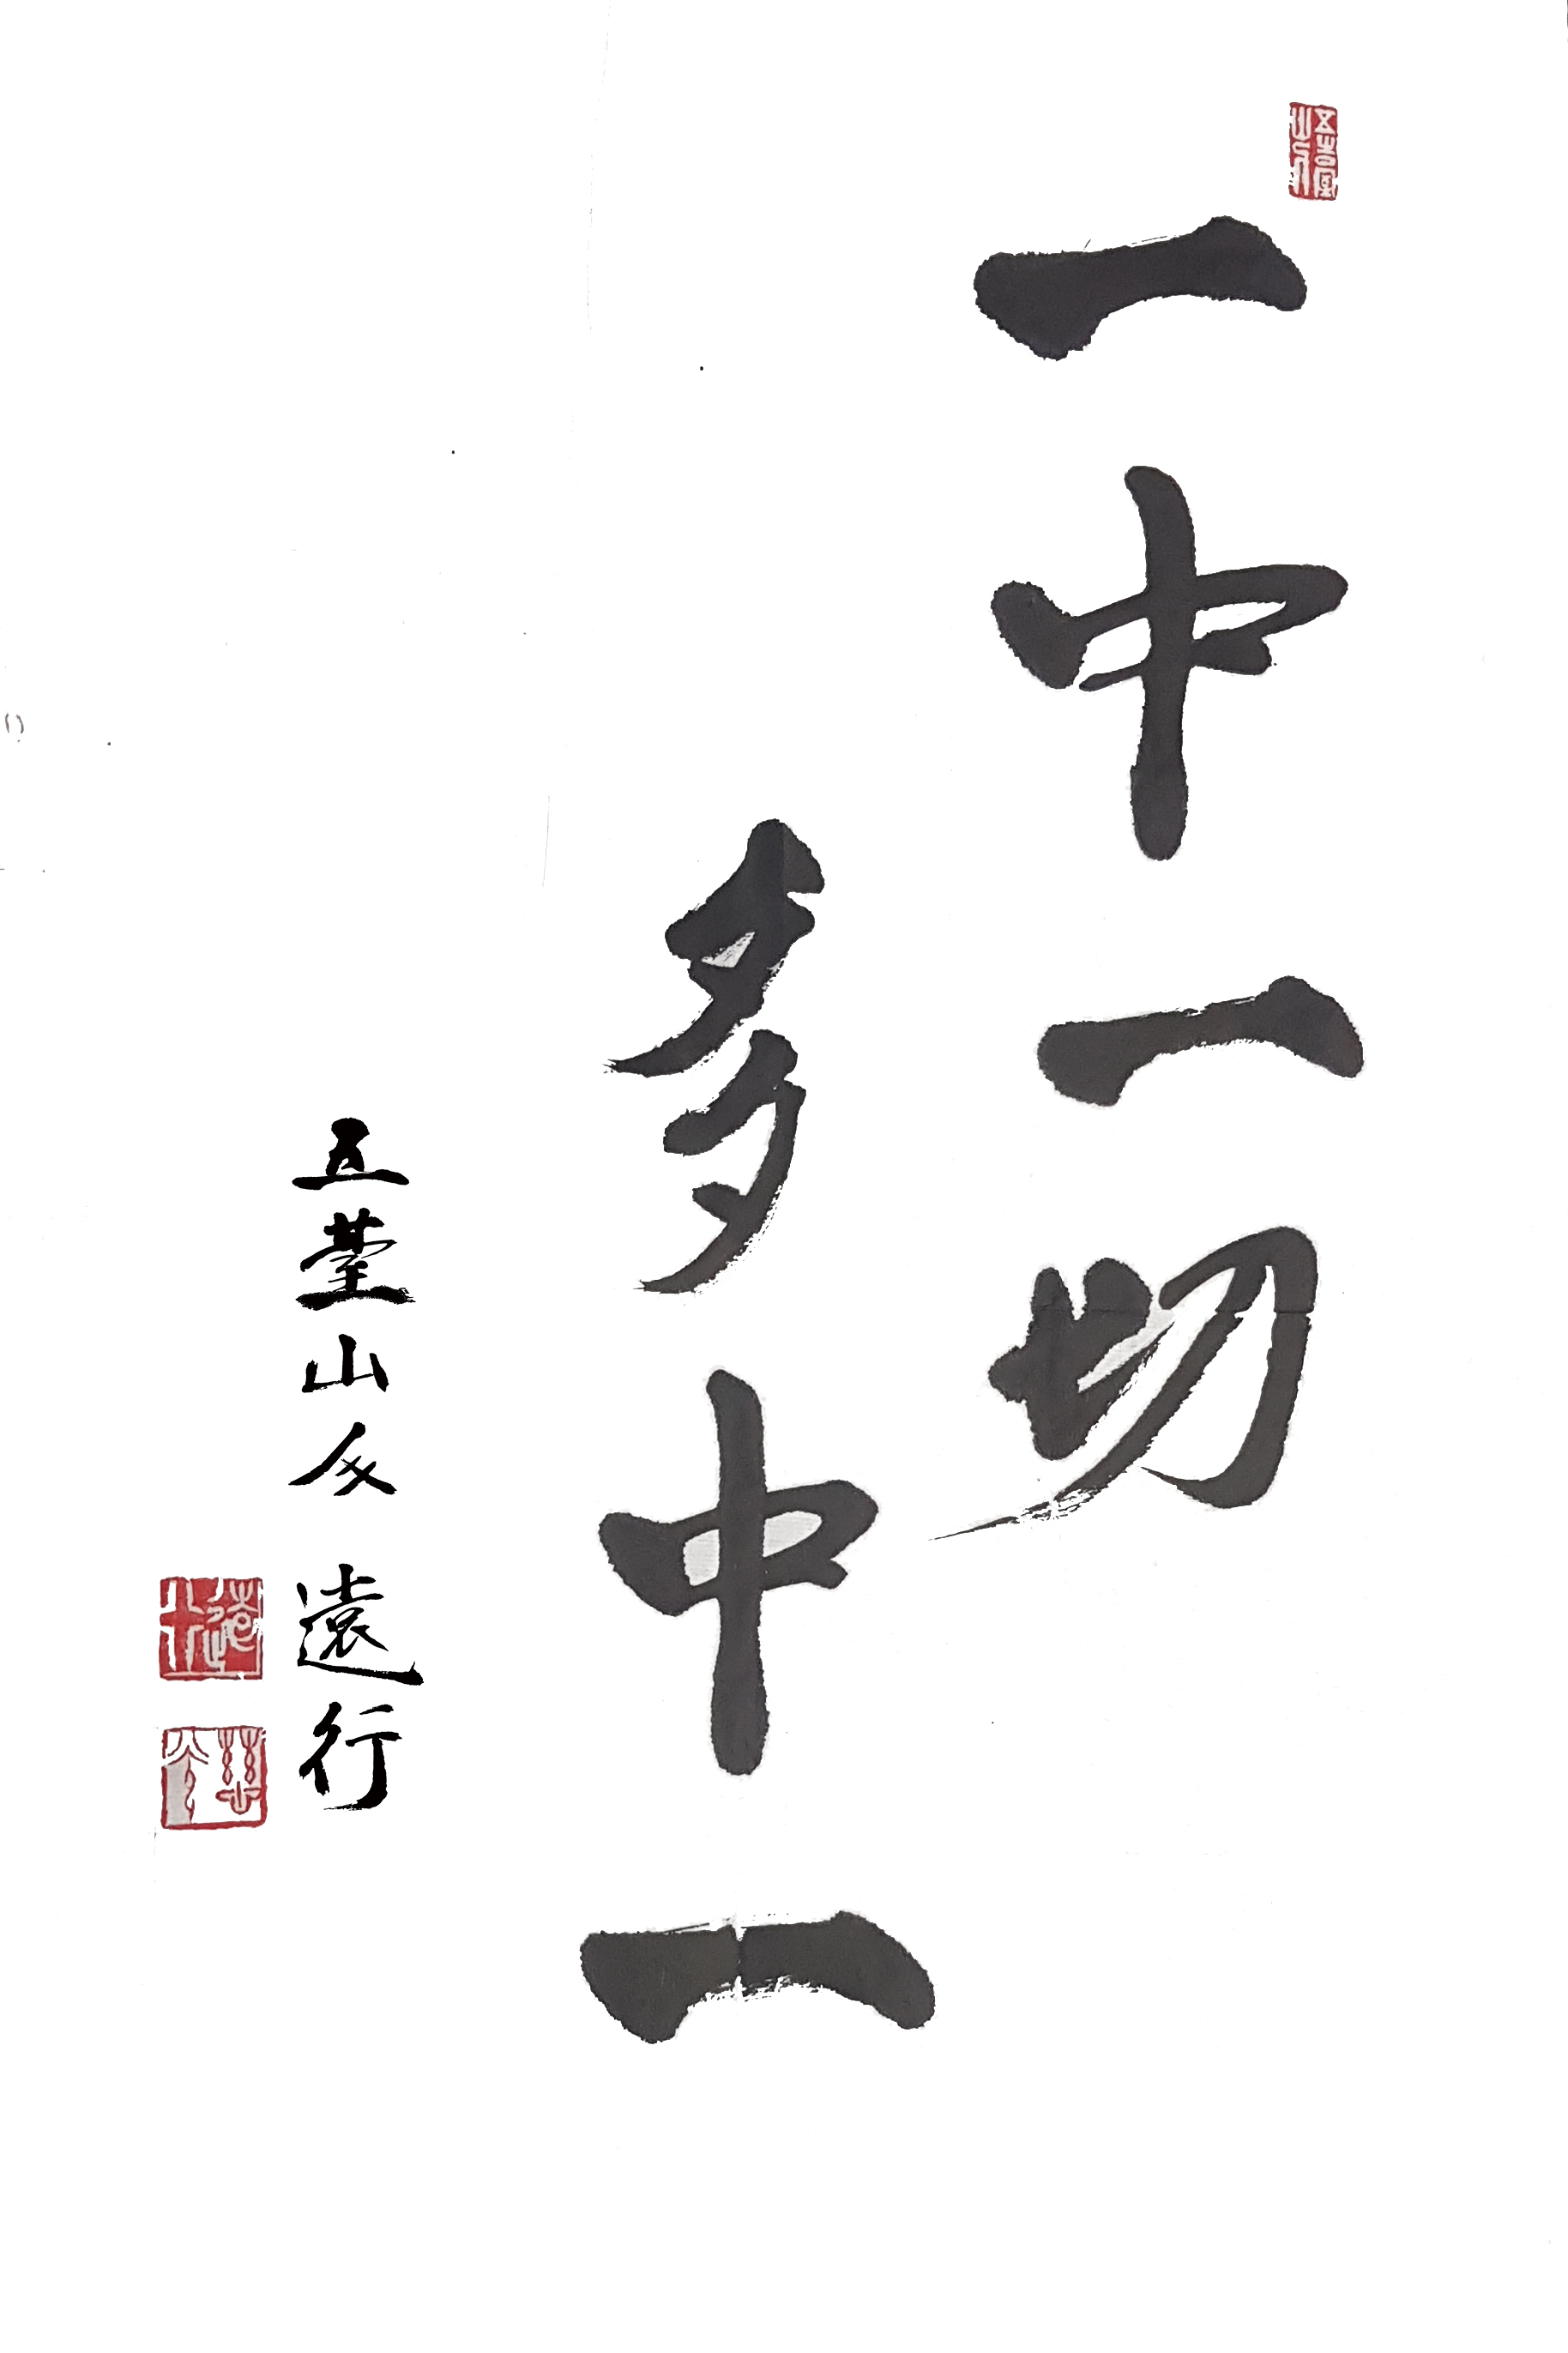 一中一切
多中一
五臺山人 遠行